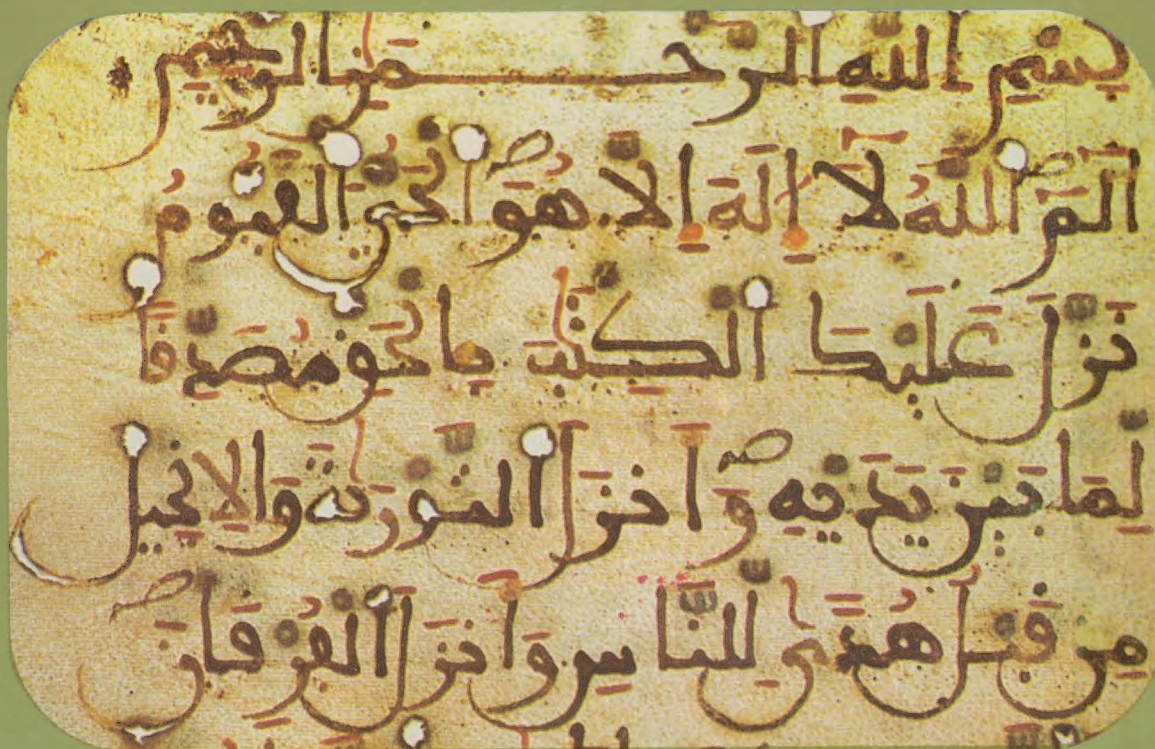 بِسْمِ اللَّهِ الرَّحْمَٰنِ الرَّحِيمِ
الَمِّ اللَّهُ لَآ إِلَٰهَ إِلَّا هُوَ الْحَيُّ الْقَيُّومُ
نَزَّلَ عَلَيْكَ الْكِتَٰبَ بِالْحَقِّ مُصَدِّقًا
لِّمَا بَيْنَ يَدَيْهِ وَأَنزَلَ التَّوْرَىٰةَ وَالْإِنجِيلَ
مِن قَبْلُ هُدًى لِّلنَّاسِ وَأَنزَلَ الْفُرْقَانَ